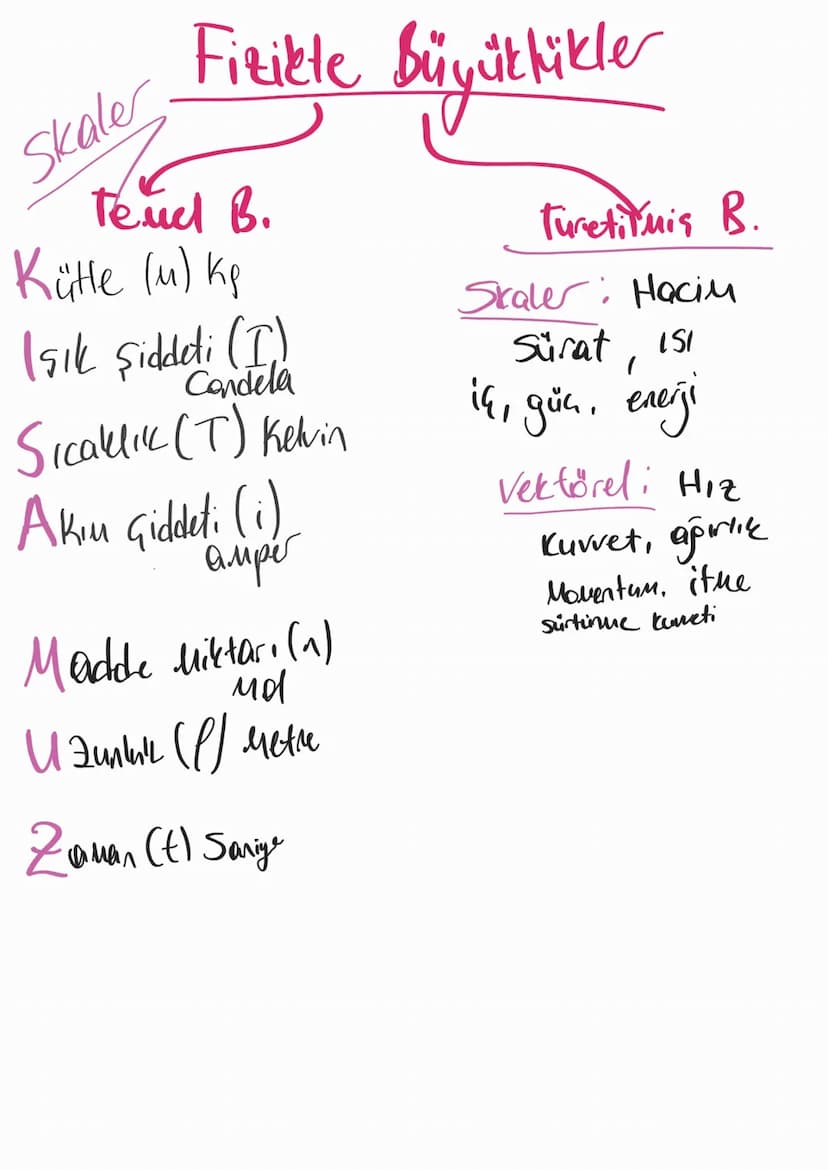 Fizikte Büyüklükler
Skaler
Temel B.
Kütle (m) kg
Işık şiddeti (I)
Candela
Sıcaklık (T) Kelvin
Akım şiddeti (i)
amper
Madde miktarı (n)
mol
Uzunluk (l) metre
Zaman (t) Saniye
Türetilmiş B.
Skaler : Hacim
Sürat , ısı
iş, güç, enerji
Vektörel : Hız
Kuvvet, ağırlık
Momentum, itme
sürtünme kuvveti